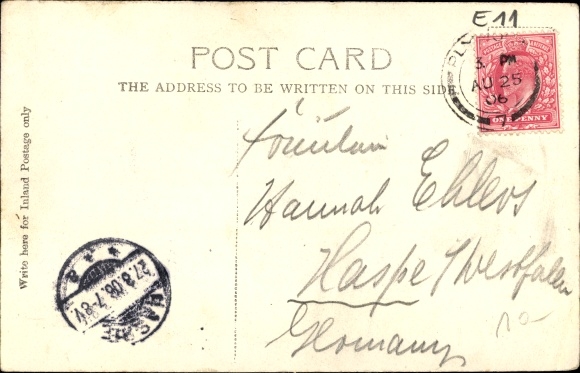 E11
POST CARD
THE ADDRESS TO BE WRITTEN ON THIS SIDE
3. PM
AU 25
06
ONE PENNY
Write here for Inland Postage only
Fräulein
Hannah Ehlers
Haspe / Westfalen
Germany
10-
27.8.06.7-8V
HASPE